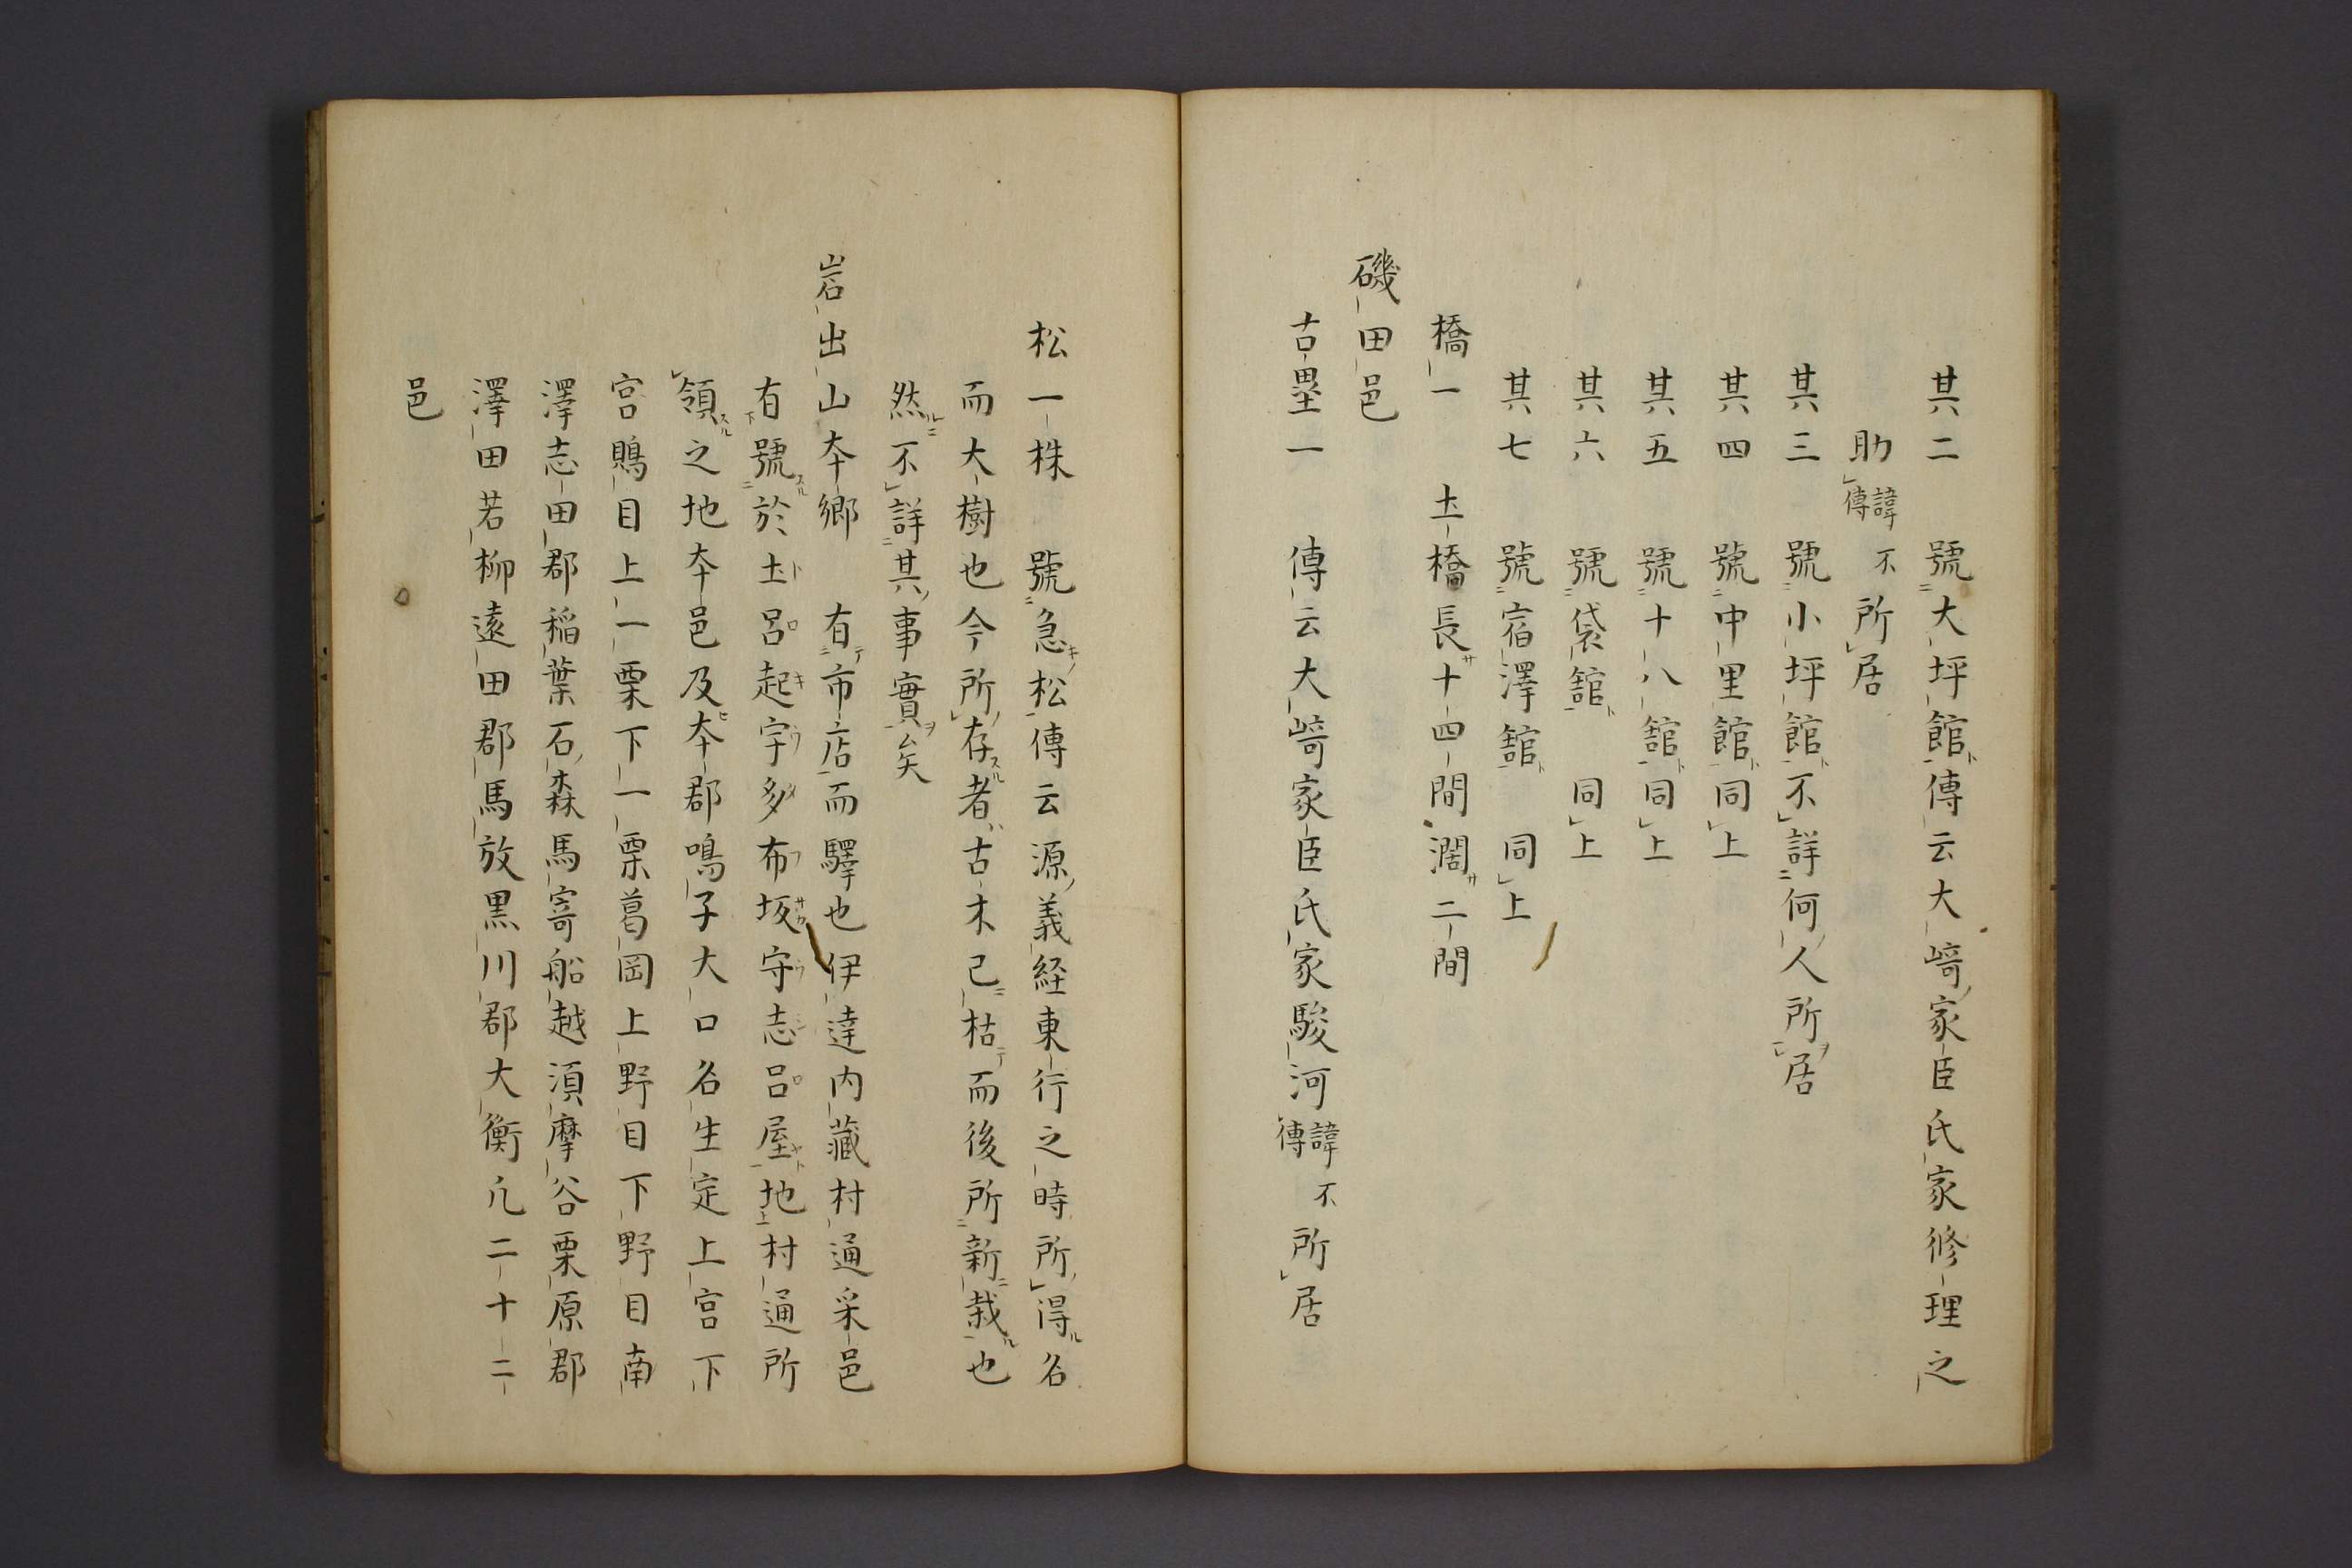 其二　號大坪館傳云大﨑家臣氏家修理之
助諱不傳所居
其三　號小坪館不詳何人所居
其四　號中里館同上
其五　號十八館同上
其六　號袋舘　同上
其七　號宿澤舘　同上
橋一　土橋長サ十四間濶サ二間
磯田邑
古壘一　傳云大﨑家臣氏家駿河諱不傳所居
松一株　號急松傳云源義経東行之時所得名
而大樹也今所存者古木已枯而後所新栽也
然不詳其事實矣
岩出山本郷　有市店而驛也伊達内藏村通采邑
有號於土呂起宇多布坂守志呂屋地村通所
領之地本邑及本郡鳴子大口名生定上宮下
宮鵙目上一栗下一栗葛岡上野目下野目南
澤志田郡稲葉石森馬寄船越須摩谷栗原郡
澤田若柳遠田郡馬放黒川郡大衡凢二十二
邑